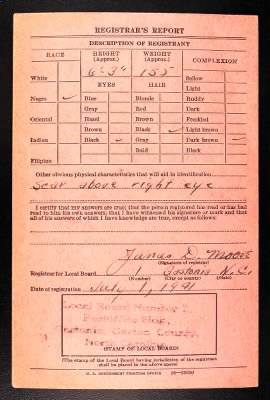 REGISTRAR'S REPORT
DESCRIPTION OF REGISTRANT
RACE HEIGHT (Approx.) WEIGHT (Approx.) COMPLEXION
6'-3" 155
White Sallow
EYES HAIR Light
Negro Blue Blonde Ruddy
Gray Red Dark
Oriental Hazel Brown Freckled
Brown Black Light brown
Indian Black Gray Dark brown
Bald Black
Filipino
Other obvious physical characteristics that will aid in identification
Scar above right eye
I certify that my answers are true; that the person registered has read or has had
read to him his own answers; that I have witnessed his signature or mark and that
all of his answers of which I have knowledge are true, except as follows:
James D. Moore
(Signature of registrar)
Registrar for Local Board Gastonia N. C.
(Number) (City or county) (State)
Date of registration July 1, 1941
Local Board Number 2
Postoffice Bldg.
Gastonia, Gaston County,
North Carolina
(STAMP OF LOCAL BOARD)
(The stamp of the Local Board having jurisdiction of the registrant
shall be placed in the above space)
U. S. GOVERNMENT PRINTING OFFICE